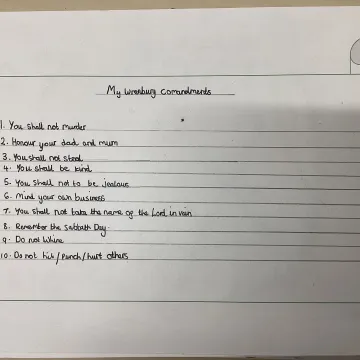 My Wrenbury Comandments
1. You shall not murder
2. Honour your dad and mum
3. You shall not steal
4. You shall be kind
5. You shall not to be jealous
6. Mind your own business
7. You shall not take the name of the Lord in vain
8. Remember the Sabbath Day.
9. Do not Whine
10. Do not hit/punch/hurt others